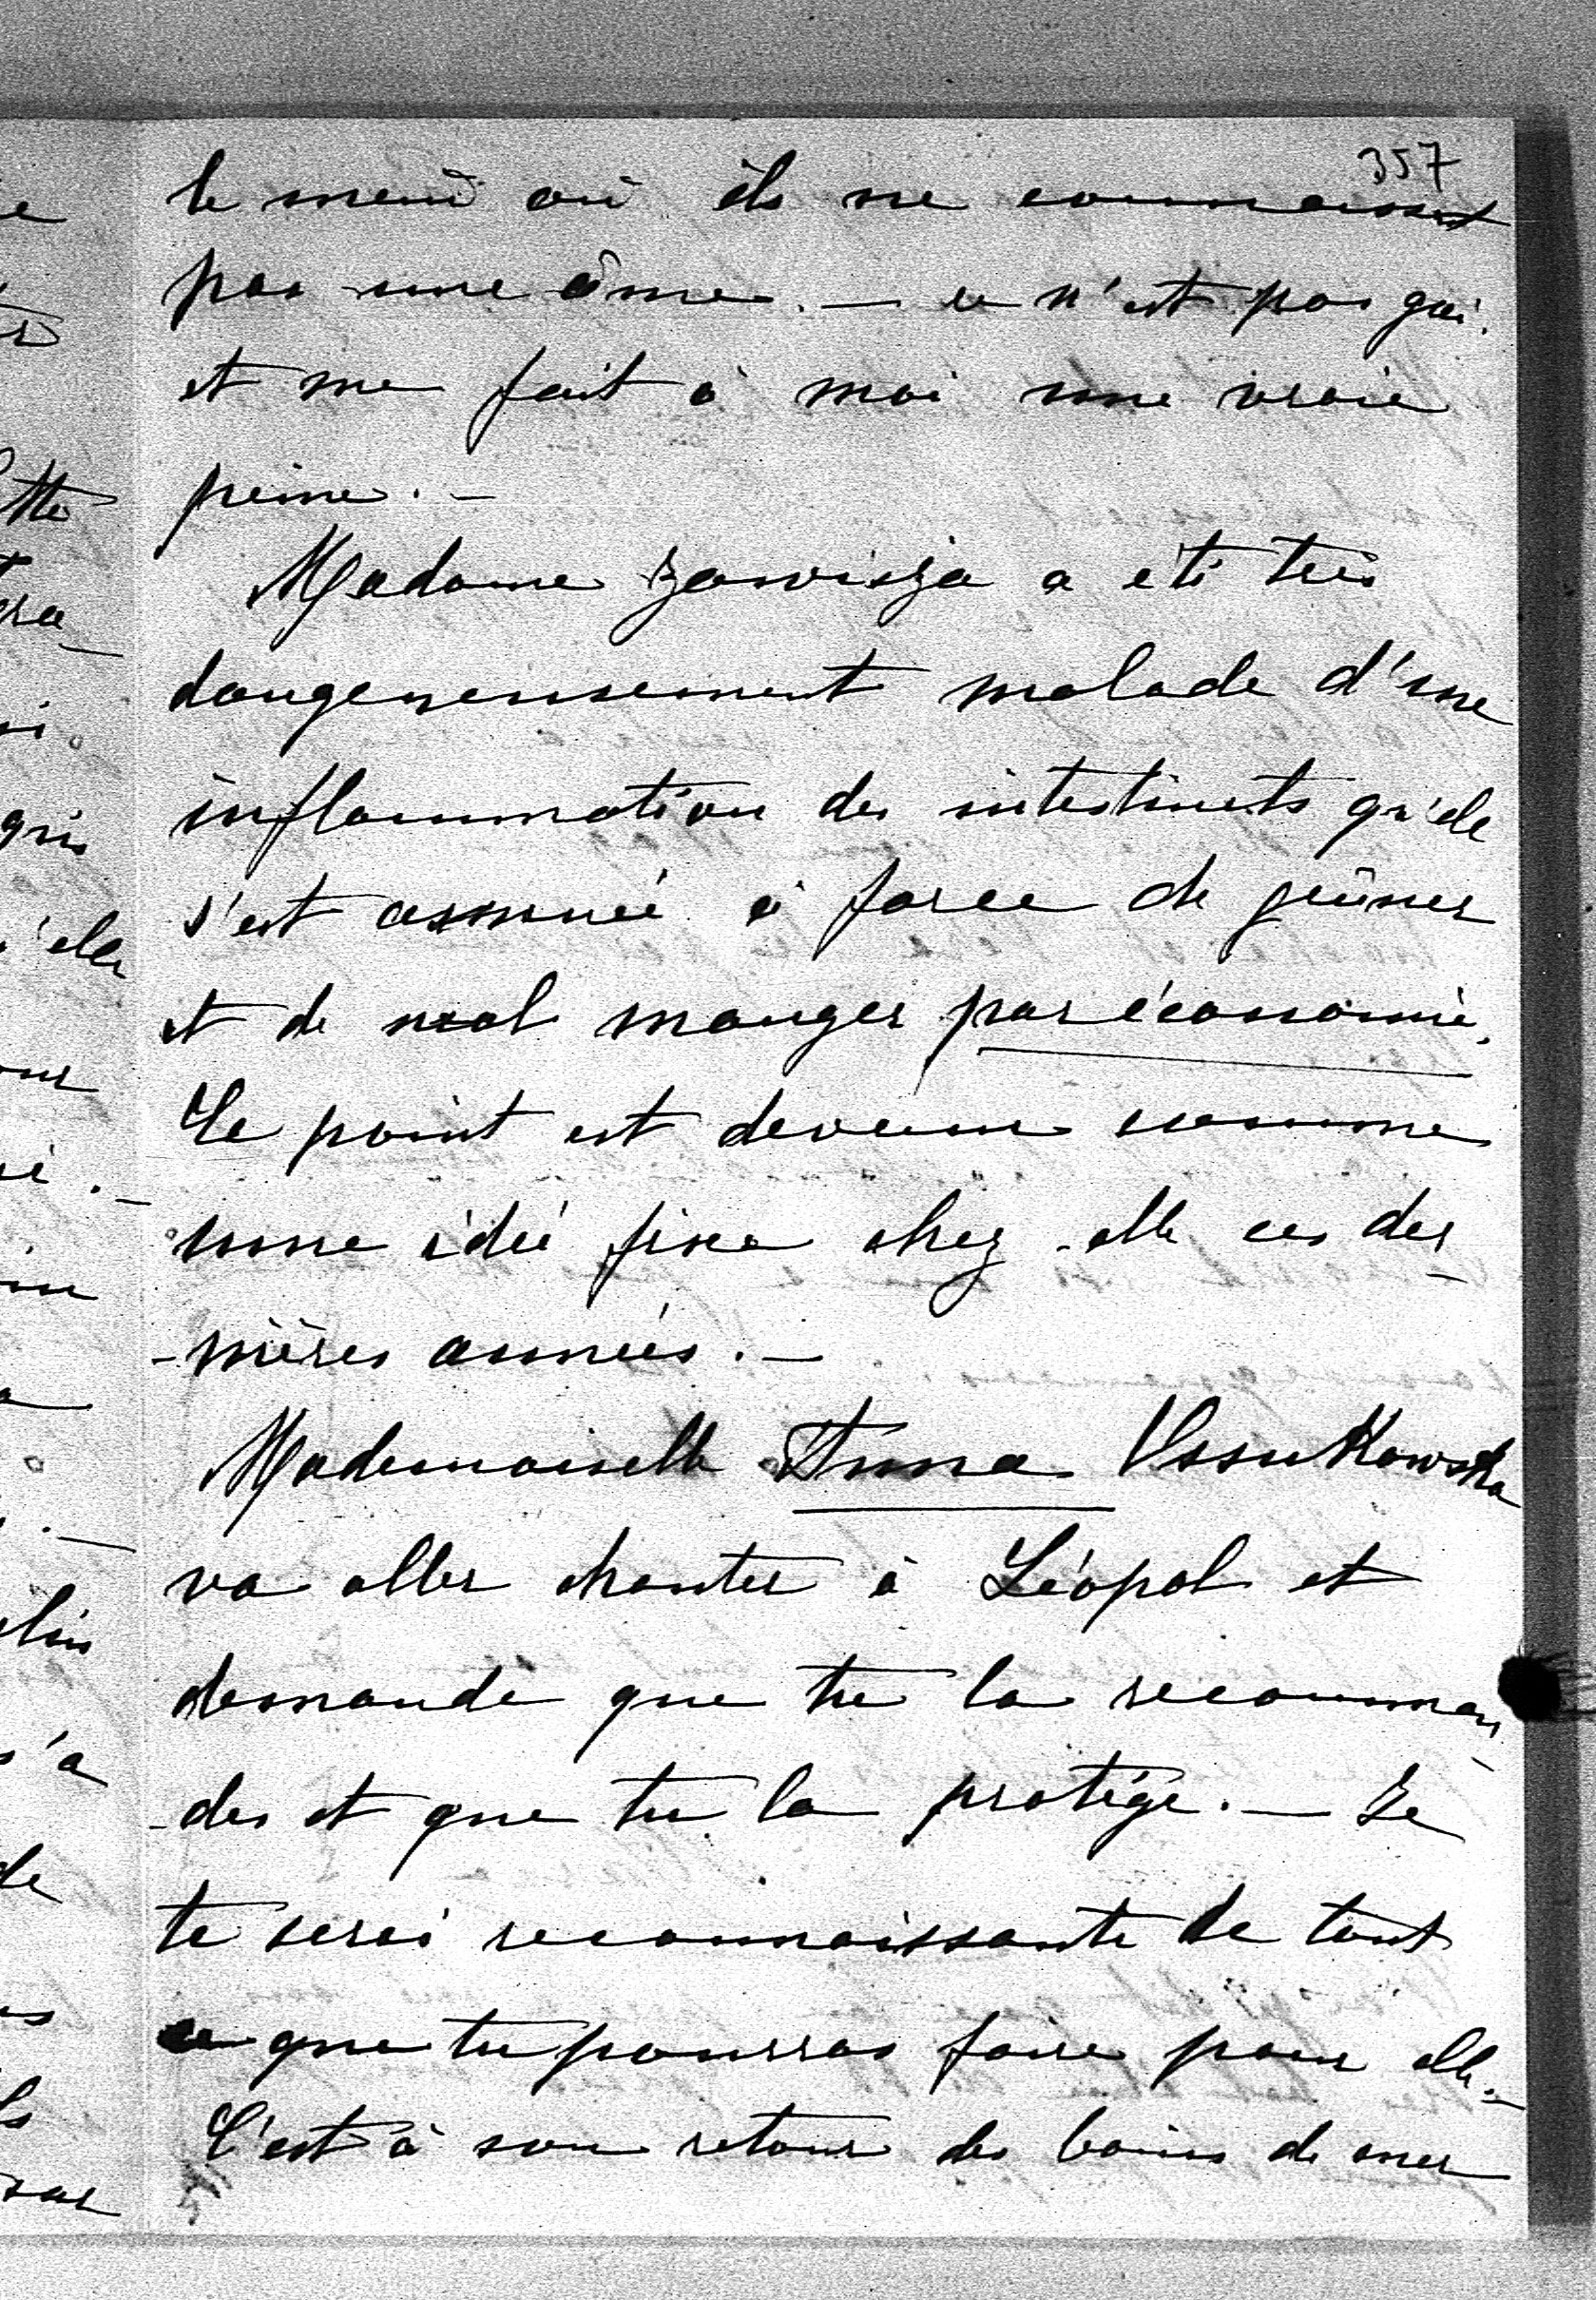 357
le menu où ils ne connaissent
pas une âme. — ce n'est pas gai.
et me fait à moi une vraie
peine. —
Madame Zawisza a été très
dangereusement malade d'une
inflammation des intestinets qu'elle
s'est à force de jeûner
et de mal manger par économie.
Ce point est devenu comme
une idée fixe chez elle ces der-
-nières années. —
Mademoiselle Anna Ussukowska
va aller chanter à Léopol et
demande que tu la recomman-
-des et que tu la protége. — Je
te serai reconnaissante de tout
ce que tu pourras faire pour elle. —
C'est à son retour des bains de mer